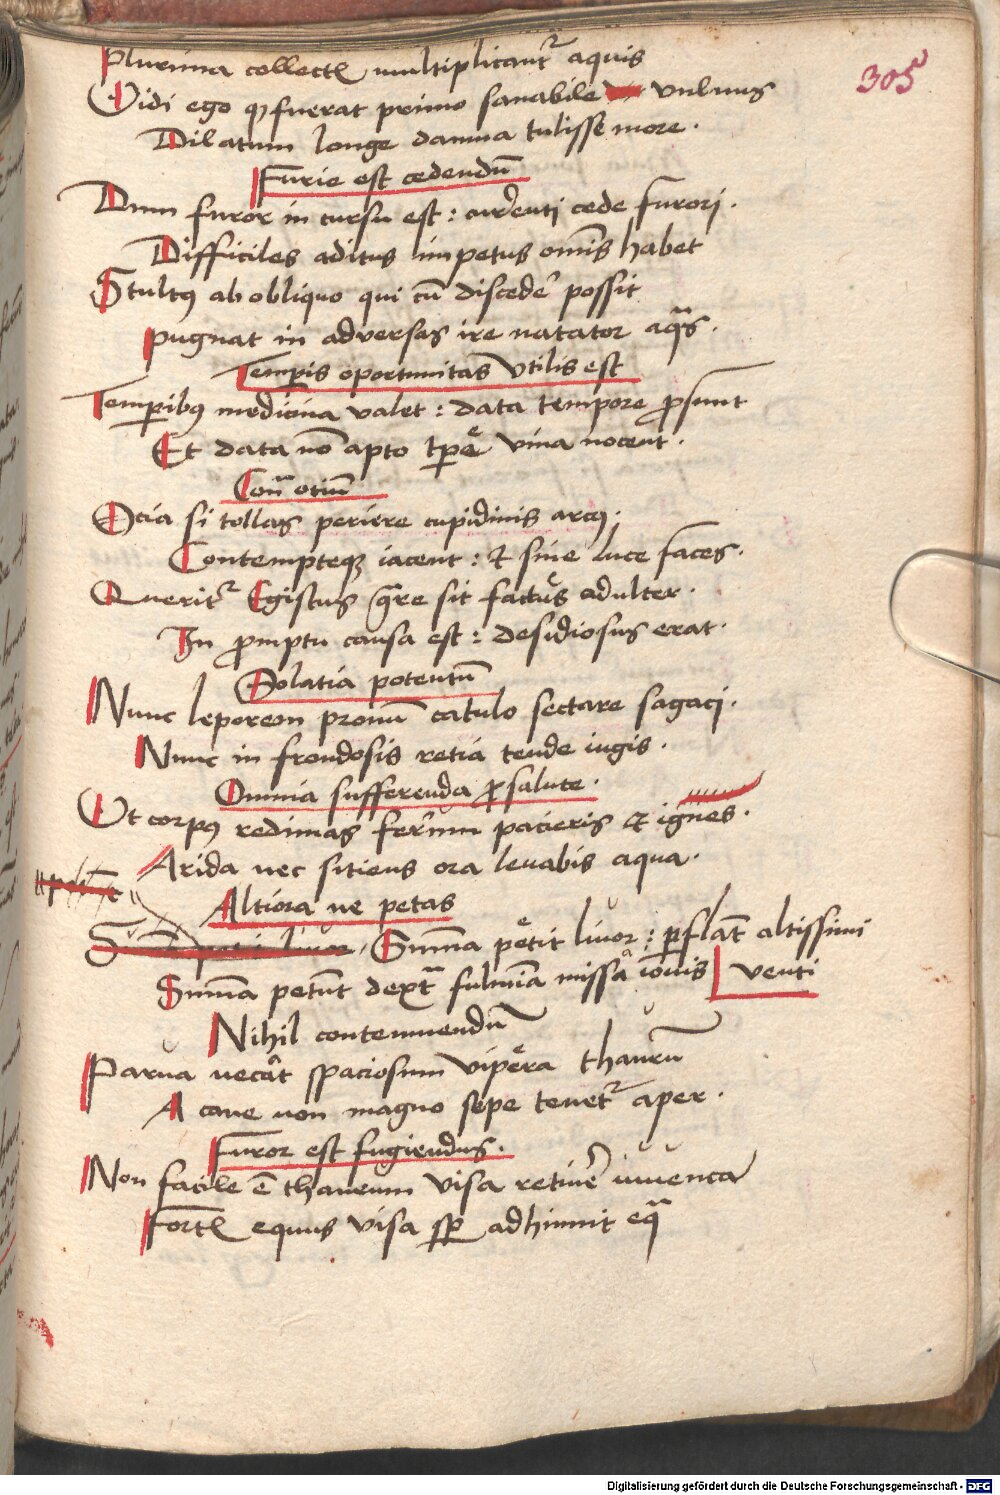 305
Plurima collectꝭ multiplicant᷑ aquis
Vidi ego ꝙ fuerat primo sanabile vulnus
Dilatum longe damna tulisse more.
Furie est cedendū
Dum furor in cursu est: currenti cede furori.
Difficiles aditus impetus omīs habet
Stultꝰ ab obliquo qui cū discedeꝛ̄ possit
pugnat in adversas ire natator aqͣs.
Temꝑis oportunitas vtilis est
Temꝑibꝰ medicina valet: data tempore ꝓsunt
Et data nō apto tꝑe vina nocent.
Conͣ otiū
Ocia si tollas periere cupidinis arcꝰ.
Contempteqꝫ iacent: et sine luce faces.
Querit᷑ Egistus qͣre sit factus adulter.
In ꝓmptu causa est: desidiosus erat.
Solatia potentū
Nunc leporem pronū catulo sectare sagaci.
Nunc in frondosis retia tende iugis.
Omnia sufferenda ꝓ salute.
Vt corpꝰ redimas fer̄um pacieris et ignes.
Arida nec sitiens ora levabis aqua.
Altiora ne petas
Sum̄a petit livor: ꝑflāt altissimi
venti
Sum̄a petunt dextͣ fulmīa missa iovis
Nihil contemnendū
Parva necāt spaciosum vipera thaurū
A cane non magno sepe tenet᷑ aper.
Furor est fugiendus.
Non facile ē thaurum visa retineꝛ̄ iuvenca
Fortꝭ equus visa sꝑ adhinnit eqͣ
Digitalisierung gefördert durch die Deutsche Forschungsgemeinschaft - DFG